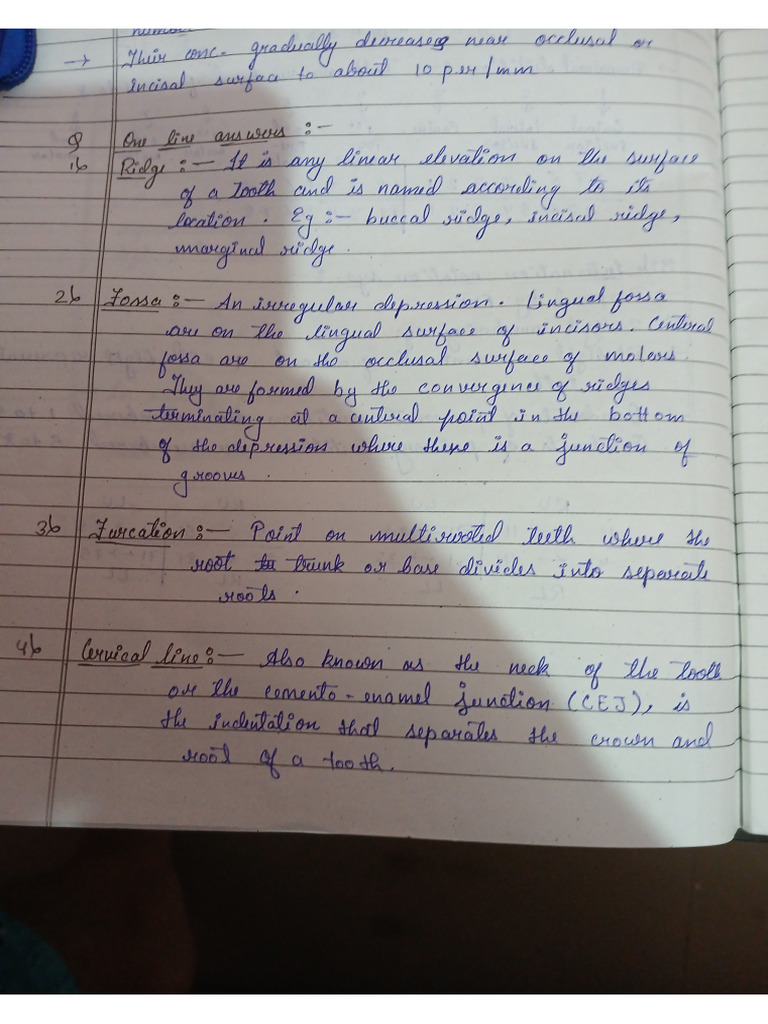 → Their conc. gradually decreases near occlusal or
incisal surface to about 10 per/mm
Q One line answers :-
1) Ridge :- It is any linear elevation on the surface
of a tooth and is named according to its
location. Eg :- buccal ridge, incisal ridge,
marginal ridge.
2) Fossa :- An irregular depression. Lingual fossa
are on the lingual surface of incisors. Centeral
fossa are on the occlusal surface of molers.
They are formed by the convergence of ridges
terminating at a centeral point in the bottom
of the depression where there is a junction of
grooves.
3) Furcation :- Point on multirooted teeth where the
root trunk or base divides into separate
roots.
4) Cervical line :- Also known as the neck of the tooth
or the cemento-enamel junction (CEJ), is
the indentation that separates the crown and
root of a tooth.